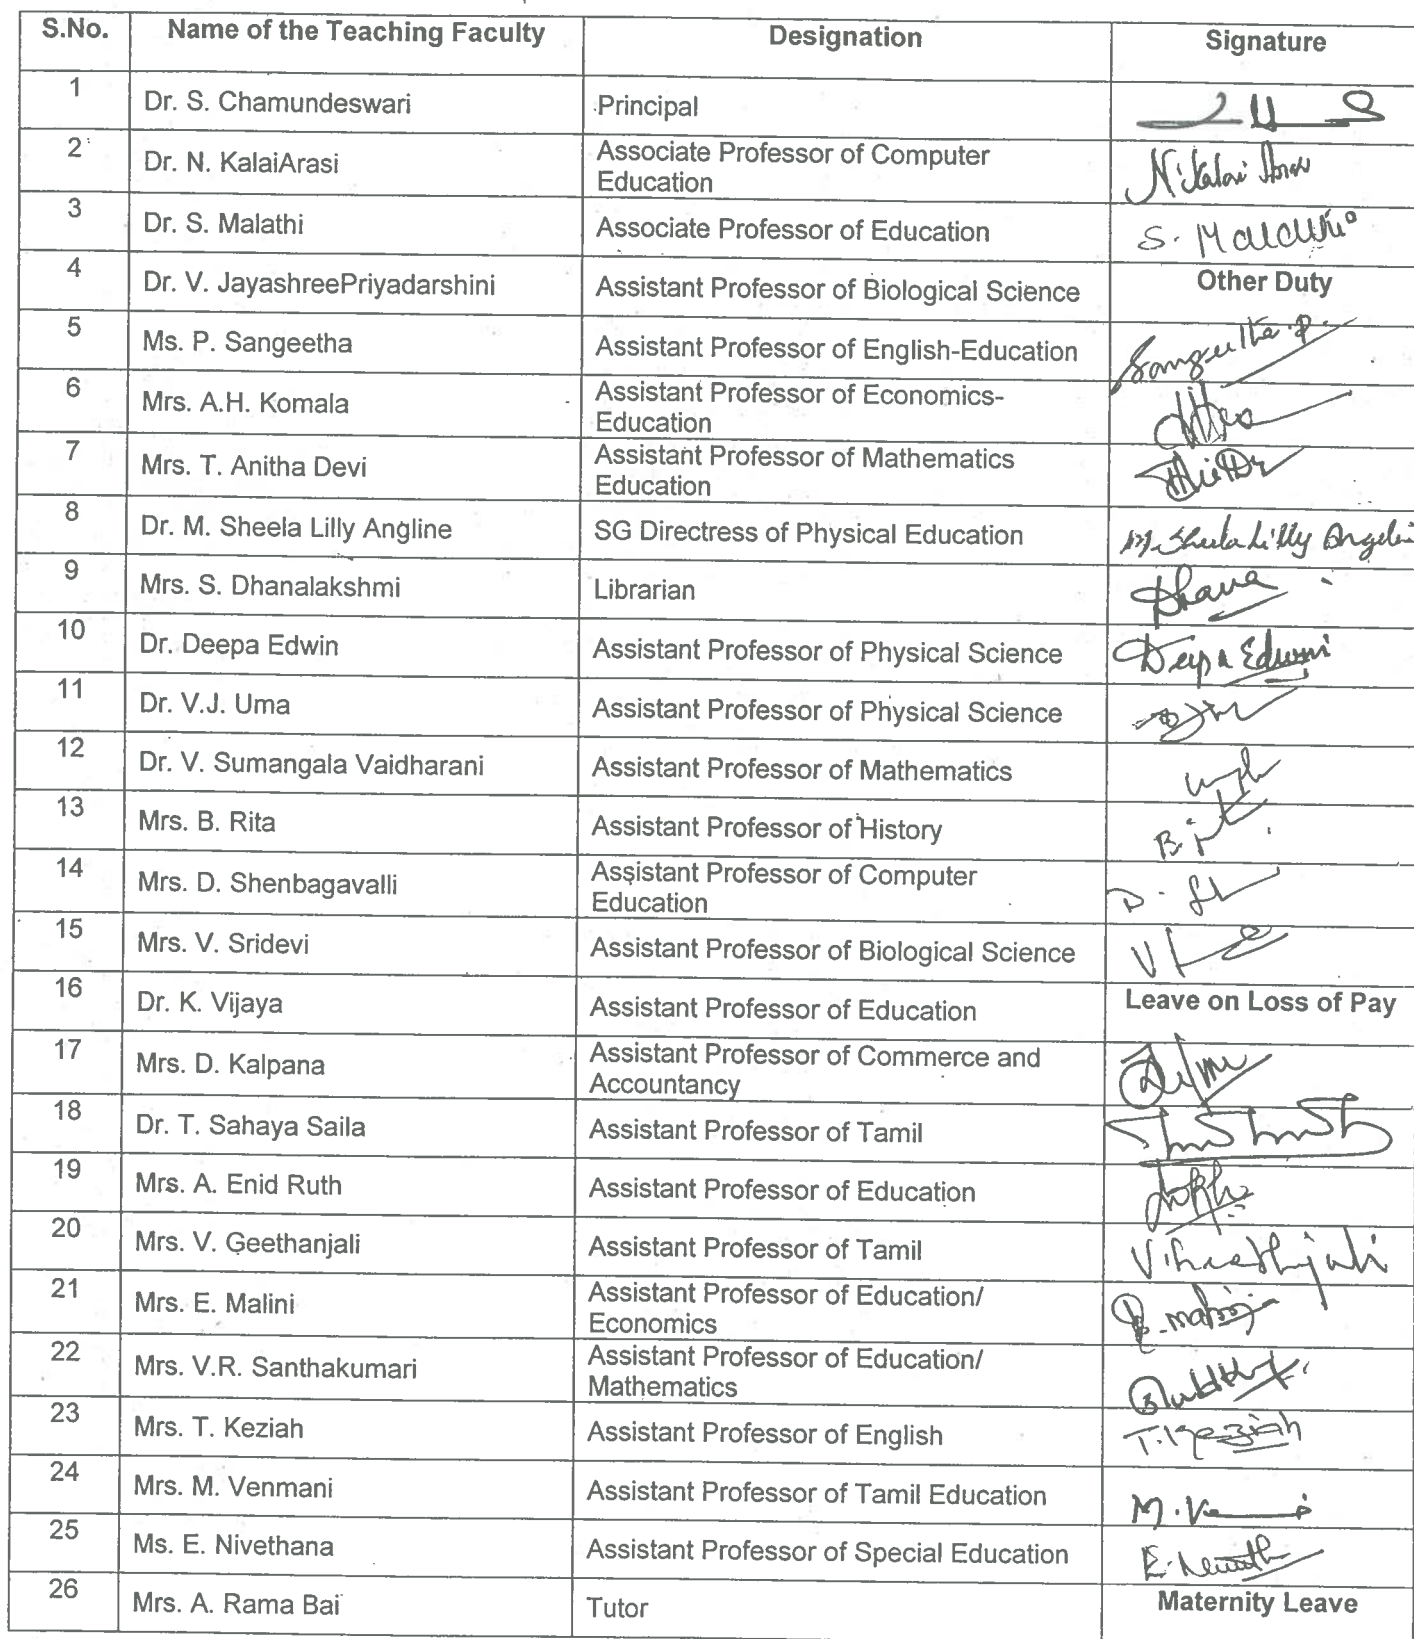 S.No. Name of the Teaching Faculty Designation Signature
1 Dr. S. Chamundeswari Principal
2 Dr. N. KalaiArasi Associate Professor of Computer
Education N. Kalai Arasi
3 Dr. S. Malathi Associate Professor of Education S. Malathi
4 Dr. V. JayashreePriyadarshini Assistant Professor of Biological Science Other Duty
5 Ms. P. Sangeetha Assistant Professor of English-Education Sangeetha.P.
6 Mrs. A.H. Komala Assistant Professor of Economics-
Education
7 Mrs. T. Anitha Devi Assistant Professor of Mathematics
Education
8 Dr. M. Sheela Lilly Angline SG Directress of Physical Education M. Sheela Lilly Angelin
9 Mrs. S. Dhanalakshmi Librarian Dhana
10 Dr. Deepa Edwin Assistant Professor of Physical Science Deepa Edwin
11 Dr. V.J. Uma Assistant Professor of Physical Science
12 Dr. V. Sumangala Vaidharani Assistant Professor of Mathematics
13 Mrs. B. Rita Assistant Professor of History B.
14 Mrs. D. Shenbagavalli Assistant Professor of Computer
Education D.
15 Mrs. V. Sridevi Assistant Professor of Biological Science
16 Dr. K. Vijaya Assistant Professor of Education Leave on Loss of Pay
17 Mrs. D. Kalpana Assistant Professor of Commerce and
Accountancy
18 Dr. T. Sahaya Saila Assistant Professor of Tamil
19 Mrs. A. Enid Ruth Assistant Professor of Education
20 Mrs. V. Geethanjali Assistant Professor of Tamil V. Geethanjali
21 Mrs. E. Malini Assistant Professor of Education/
Economics E. Malini
22 Mrs. V.R. Santhakumari Assistant Professor of Education/
Mathematics
23 Mrs. T. Keziah Assistant Professor of English T. Keziah
24 Mrs. M. Venmani Assistant Professor of Tamil Education M.
25 Ms. E. Nivethana Assistant Professor of Special Education E.
26 Mrs. A. Rama Bai Tutor Maternity Leave